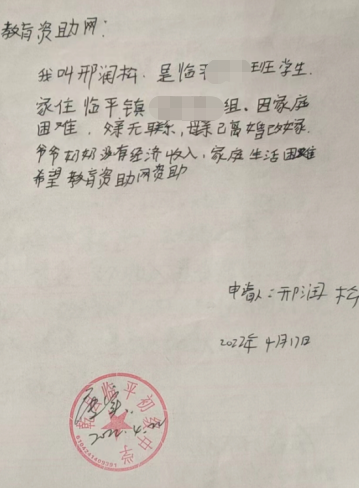 教育资助网：
我叫邢润松，是临平 班学生.
家住临平镇 组. 因家庭
困难，父亲无联系，母亲已离婚改嫁.
爷爷奶奶没有经济收入，家庭生活困难
希望教育资助网资助
申请人：邢润松
2022年4月17日
乾县临平初级中学
2022.4.